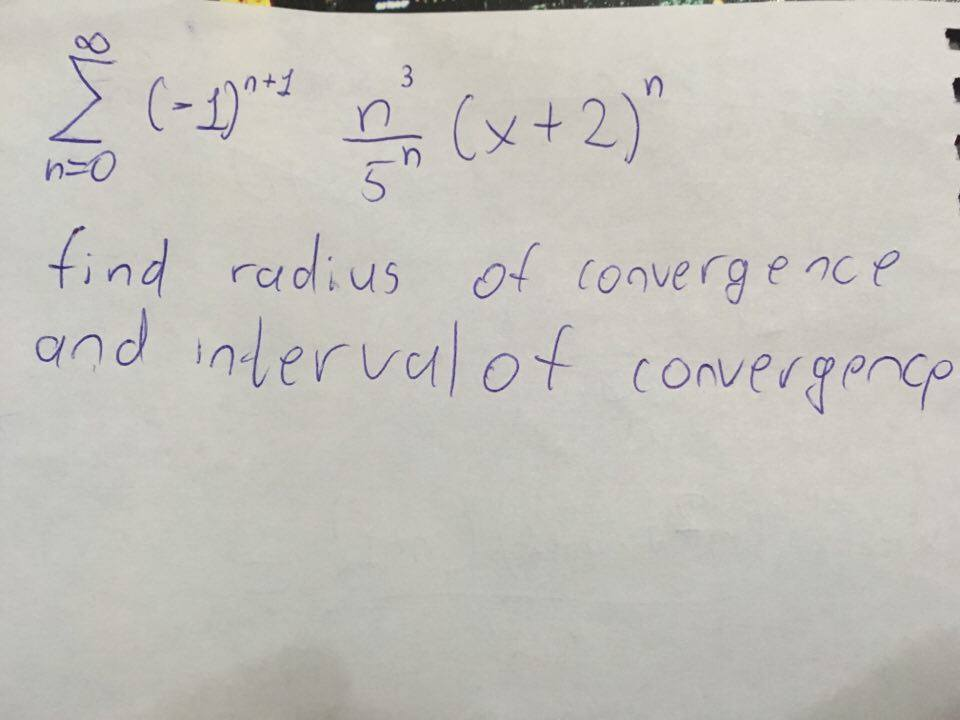 ∞
∑ (-1)^{n+1} n^3/5^n (x+2)^n
n=0
find radius of convergence
and interval of convergence